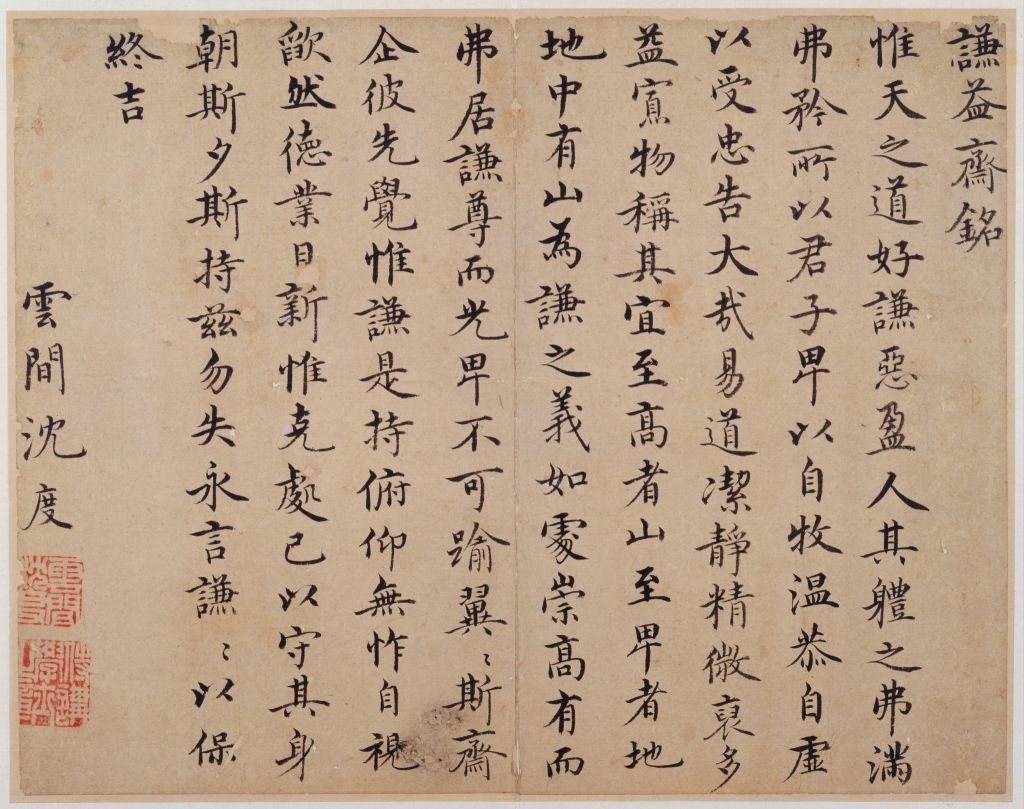 謙益齋銘
惟天之道好謙惡盈人其體之弗滿
弗矜所以君子卑以自牧温恭自虛
以受忠告大哉易道潔靜精微裒多
益寡物稱其宜至高者山至卑者地
地中有山為謙之義如處崇高有而
弗居謙尊而光卑不可踰翼〻斯齋
企彼先覺惟謙是持俯仰無怍自視
歉然德業日新惟克處己以守其身
朝斯夕斯持茲勿失永言謙〻以保
終吉
雲間沈度